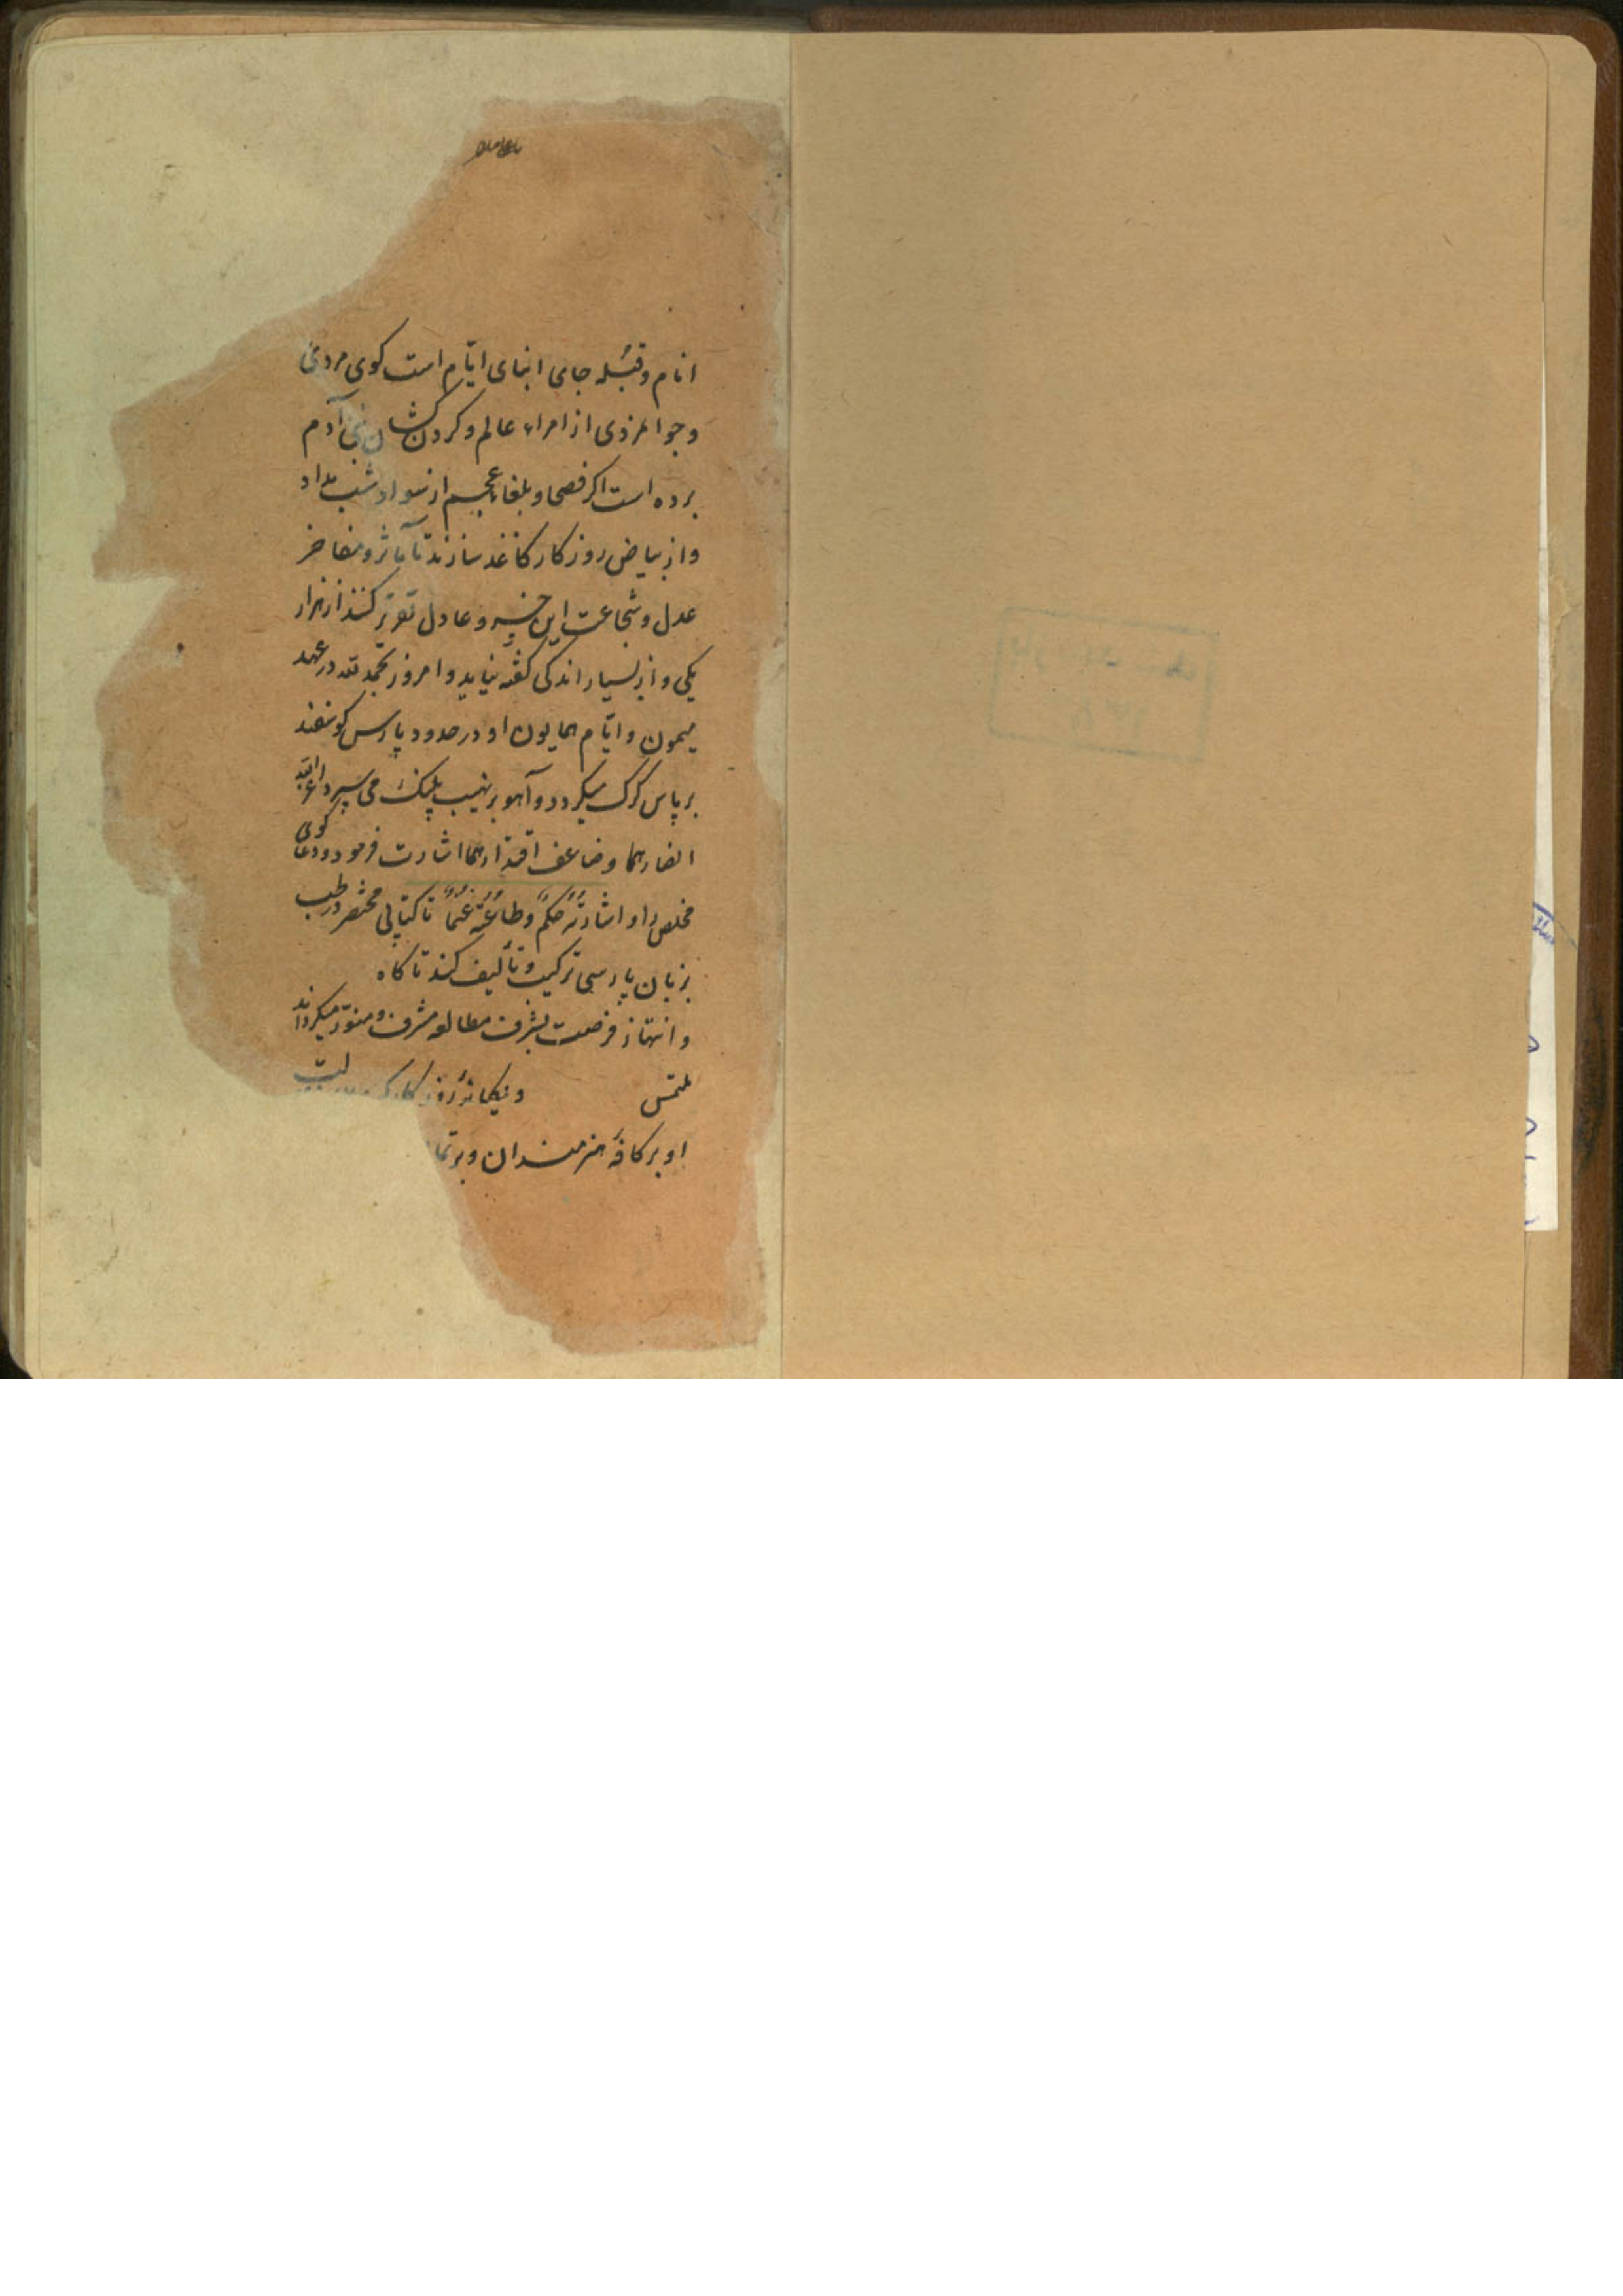 انام و قبله جای ابنای ایّام است کوی مردی
و جوانمردی از امراء عالم و کردن کشان بنی آدم
برده است اکر فصحا و بلغاء عجم از سواد شب مداد
و از بیاض روزکار کاغذ سازند تا مآثر و مفاخر
عدل و شجاعت این خسرو عادل تقریر کنند از هزار
یکی و از بسیار اندکی کفته نیاید و امروز بحمد الله در عهد
میمون و ایّام همایون او در حدود پارس کوسفند
بر پاس کرک میکردد و آهو بر نهیب پلنک می سپرد اعز الله
انصارهما و ضاعف اقتدارهما اشارت فرمود و دعا کوی
مخلص را و اشارتُهُ حکمٌ و طاعتُهُ غنمٌ تا کتابی مختصر در طب
بزبان پارسی ترکیب و تألیف کند تا کاه
و انتهاز فرصت بشرف مطالعه مشرف و منوّر میکرداند
ملتمس و نیکها
او بر کافّه هنرمندان و بر